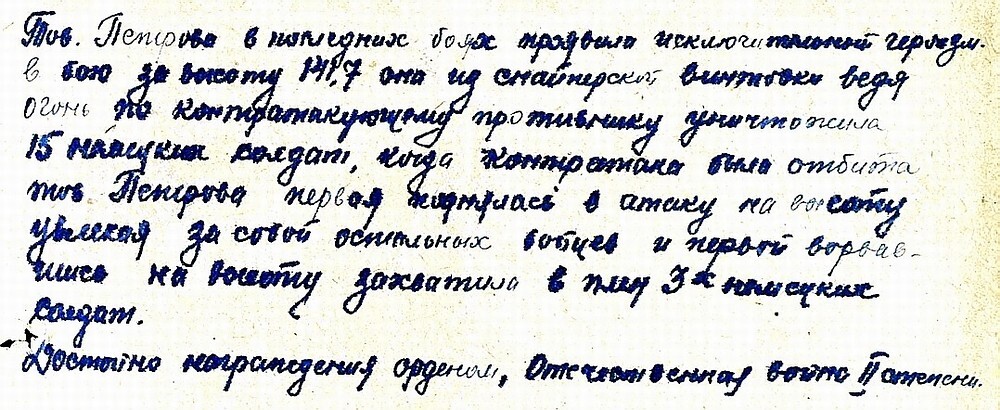 Тов. Петрова в последних боях проявила исключительный героизм.
в бою за высоту 141,7 она из снайперской винтовки ведя
огонь по контратакующему противнику уничтожила
15 немецких солдат, когда контратака была отбита
тов. Петрова первая поднялась в атаку на высоту
увлекая за собой остальных бойцев и первой ворвав-
шись на высоту захватила в плен 3х немецких
солдат.
Достойна награждения орденом, Отечественная война II степени.